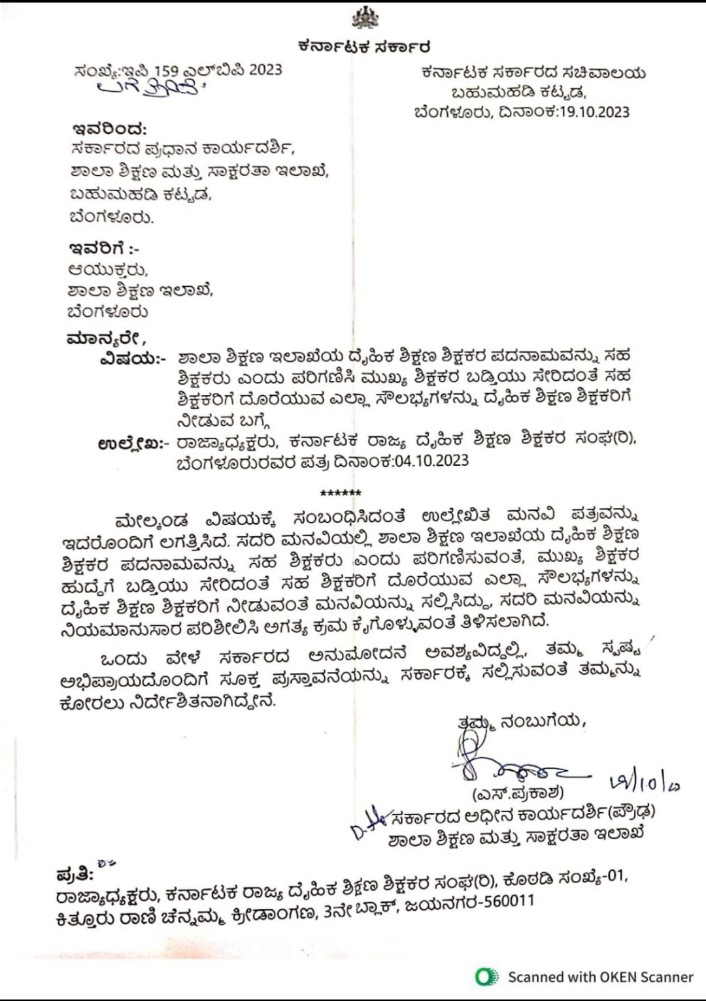 ಕರ್ನಾಟಕ ಸರ್ಕಾರ
ಸಂಖ್ಯೆ:ಇಪಿ 159 ಎಲ್‌ಬಿಪಿ 2023
ಕರ್ನಾಟಕ ಸರ್ಕಾರದ ಸಚಿವಾಲಯ
ಬಹುಮಹಡಿ ಕಟ್ಟಡ,
ಬೆಂಗಳೂರು, ದಿನಾಂಕ:19.10.2023
ಇವರಿಂದ:
ಸರ್ಕಾರದ ಪ್ರಧಾನ ಕಾರ್ಯದರ್ಶಿ,
ಶಾಲಾ ಶಿಕ್ಷಣ ಮತ್ತು ಸಾಕ್ಷರತಾ ಇಲಾಖೆ,
ಬಹುಮಹಡಿ ಕಟ್ಟಡ,
ಬೆಂಗಳೂರು.
ಇವರಿಗೆ :-
ಆಯುಕ್ತರು,
ಶಾಲಾ ಶಿಕ್ಷಣ ಇಲಾಖೆ,
ಬೆಂಗಳೂರು
ಮಾನ್ಯರೇ,
ವಿಷಯ:- ಶಾಲಾ ಶಿಕ್ಷಣ ಇಲಾಖೆಯ ದೈಹಿಕ ಶಿಕ್ಷಣ ಶಿಕ್ಷಕರ ಪದನಾಮವನ್ನು ಸಹ
ಶಿಕ್ಷಕರು ಎಂದು ಪರಿಗಣಿಸಿ ಮುಖ್ಯ ಶಿಕ್ಷಕರ ಬಡ್ತಿಯು ಸೇರಿದಂತೆ ಸಹ
ಶಿಕ್ಷಕರಿಗೆ ದೊರೆಯುವ ಎಲ್ಲಾ ಸೌಲಭ್ಯಗಳನ್ನು ದೈಹಿಕ ಶಿಕ್ಷಣ ಶಿಕ್ಷಕರಿಗೆ
ನೀಡುವ ಬಗ್ಗೆ
ಉಲ್ಲೇಖ:- ರಾಜ್ಯಾಧ್ಯಕ್ಷರು, ಕರ್ನಾಟಕ ರಾಜ್ಯ ದೈಹಿಕ ಶಿಕ್ಷಣ ಶಿಕ್ಷಕರ ಸಂಘ(ರಿ),
ಬೆಂಗಳೂರುರವರ ಪತ್ರ ದಿನಾಂಕ:04.10.2023
******
ಮೇಲ್ಕಂಡ ವಿಷಯಕ್ಕೆ ಸಂಬಂಧಿಸಿದಂತೆ ಉಲ್ಲೇಖಿತ ಮನವಿ ಪತ್ರವನ್ನು
ಇದರೊಂದಿಗೆ ಲಗತ್ತಿಸಿದೆ. ಸದರಿ ಮನವಿಯಲ್ಲಿ ಶಾಲಾ ಶಿಕ್ಷಣ ಇಲಾಖೆಯ ದೈಹಿಕ ಶಿಕ್ಷಣ
ಶಿಕ್ಷಕರ ಪದನಾಮವನ್ನು ಸಹ ಶಿಕ್ಷಕರು ಎಂದು ಪರಿಗಣಿಸುವಂತೆ, ಮುಖ್ಯ ಶಿಕ್ಷಕರ
ಹುದ್ದೆಗೆ ಬಡ್ತಿಯು ಸೇರಿದಂತೆ ಸಹ ಶಿಕ್ಷಕರಿಗೆ ದೊರೆಯುವ ಎಲ್ಲಾ ಸೌಲಭ್ಯಗಳನ್ನು
ದೈಹಿಕ ಶಿಕ್ಷಣ ಶಿಕ್ಷಕರಿಗೆ ನೀಡುವಂತೆ ಮನವಿಯನ್ನು ಸಲ್ಲಿಸಿದ್ದು, ಸದರಿ ಮನವಿಯನ್ನು
ನಿಯಮಾನುಸಾರ ಪರಿಶೀಲಿಸಿ ಅಗತ್ಯ ಕ್ರಮ ಕೈಗೊಳ್ಳುವಂತೆ ತಿಳಿಸಲಾಗಿದೆ.
ಒಂದು ವೇಳೆ ಸರ್ಕಾರದ ಅನುಮೋದನೆ ಅವಶ್ಯವಿದ್ದಲ್ಲಿ, ತಮ್ಮ ಸ್ಪಷ್ಟ
ಅಭಿಪ್ರಾಯದೊಂದಿಗೆ ಸೂಕ್ತ ಪ್ರಸ್ತಾವನೆಯನ್ನು ಸರ್ಕಾರಕ್ಕೆ ಸಲ್ಲಿಸುವಂತೆ ತಮ್ಮನ್ನು
ಕೋರಲು ನಿರ್ದೇಶಿತನಾಗಿದ್ದೇನೆ.
ತಮ್ಮ ನಂಬುಗೆಯ,
(ಎಸ್.ಪ್ರಕಾಶ)
ಸರ್ಕಾರದ ಅಧೀನ ಕಾರ್ಯದರ್ಶಿ(ಪ್ರೌಢ)
ಶಾಲಾ ಶಿಕ್ಷಣ ಮತ್ತು ಸಾಕ್ಷರತಾ ಇಲಾಖೆ
ಪ್ರತಿ:
ರಾಜ್ಯಾಧ್ಯಕ್ಷರು, ಕರ್ನಾಟಕ ರಾಜ್ಯ ದೈಹಿಕ ಶಿಕ್ಷಣ ಶಿಕ್ಷಕರ ಸಂಘ(ರಿ), ಕೊಠಡಿ ಸಂಖ್ಯೆ-01,
ಕಿತ್ತೂರು ರಾಣಿ ಚೆನ್ನಮ್ಮ ಕ್ರೀಡಾಂಗಣ, 3ನೇ ಬ್ಲಾಕ್, ಜಯನಗರ-560011
Scanned with OKEN Scanner